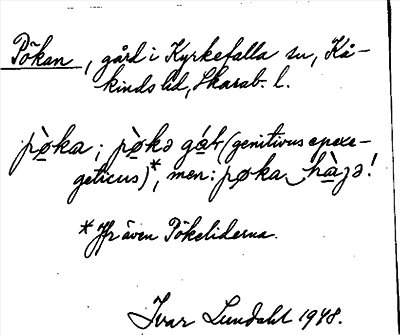 Pökan, gård i Kyrkefalla sn, Kå-
kinds hd, Skarab. l.
pø̀ka; pø̀kə gá̱ḷ (genitivus epexe-
geticus)*, men: pøka hà̱gə!
* Jfr även Pökeliderna.
Ivar Lundahl 1948.